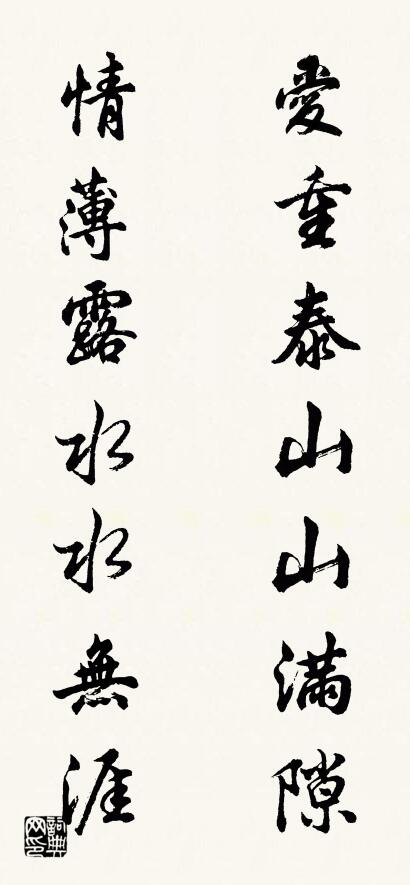 愛重泰山山滿隙
情薄露水水無涯
詞典网印